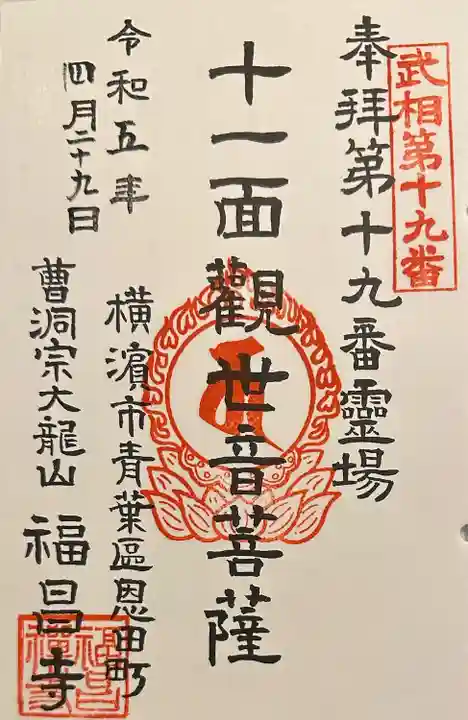 武相第十九番
奉拝第十九番靈場
十一面觀世音菩薩
令和五年
四月二十九日
橫濱市青葉區恩田町
曹洞宗大龍山 福昌寺